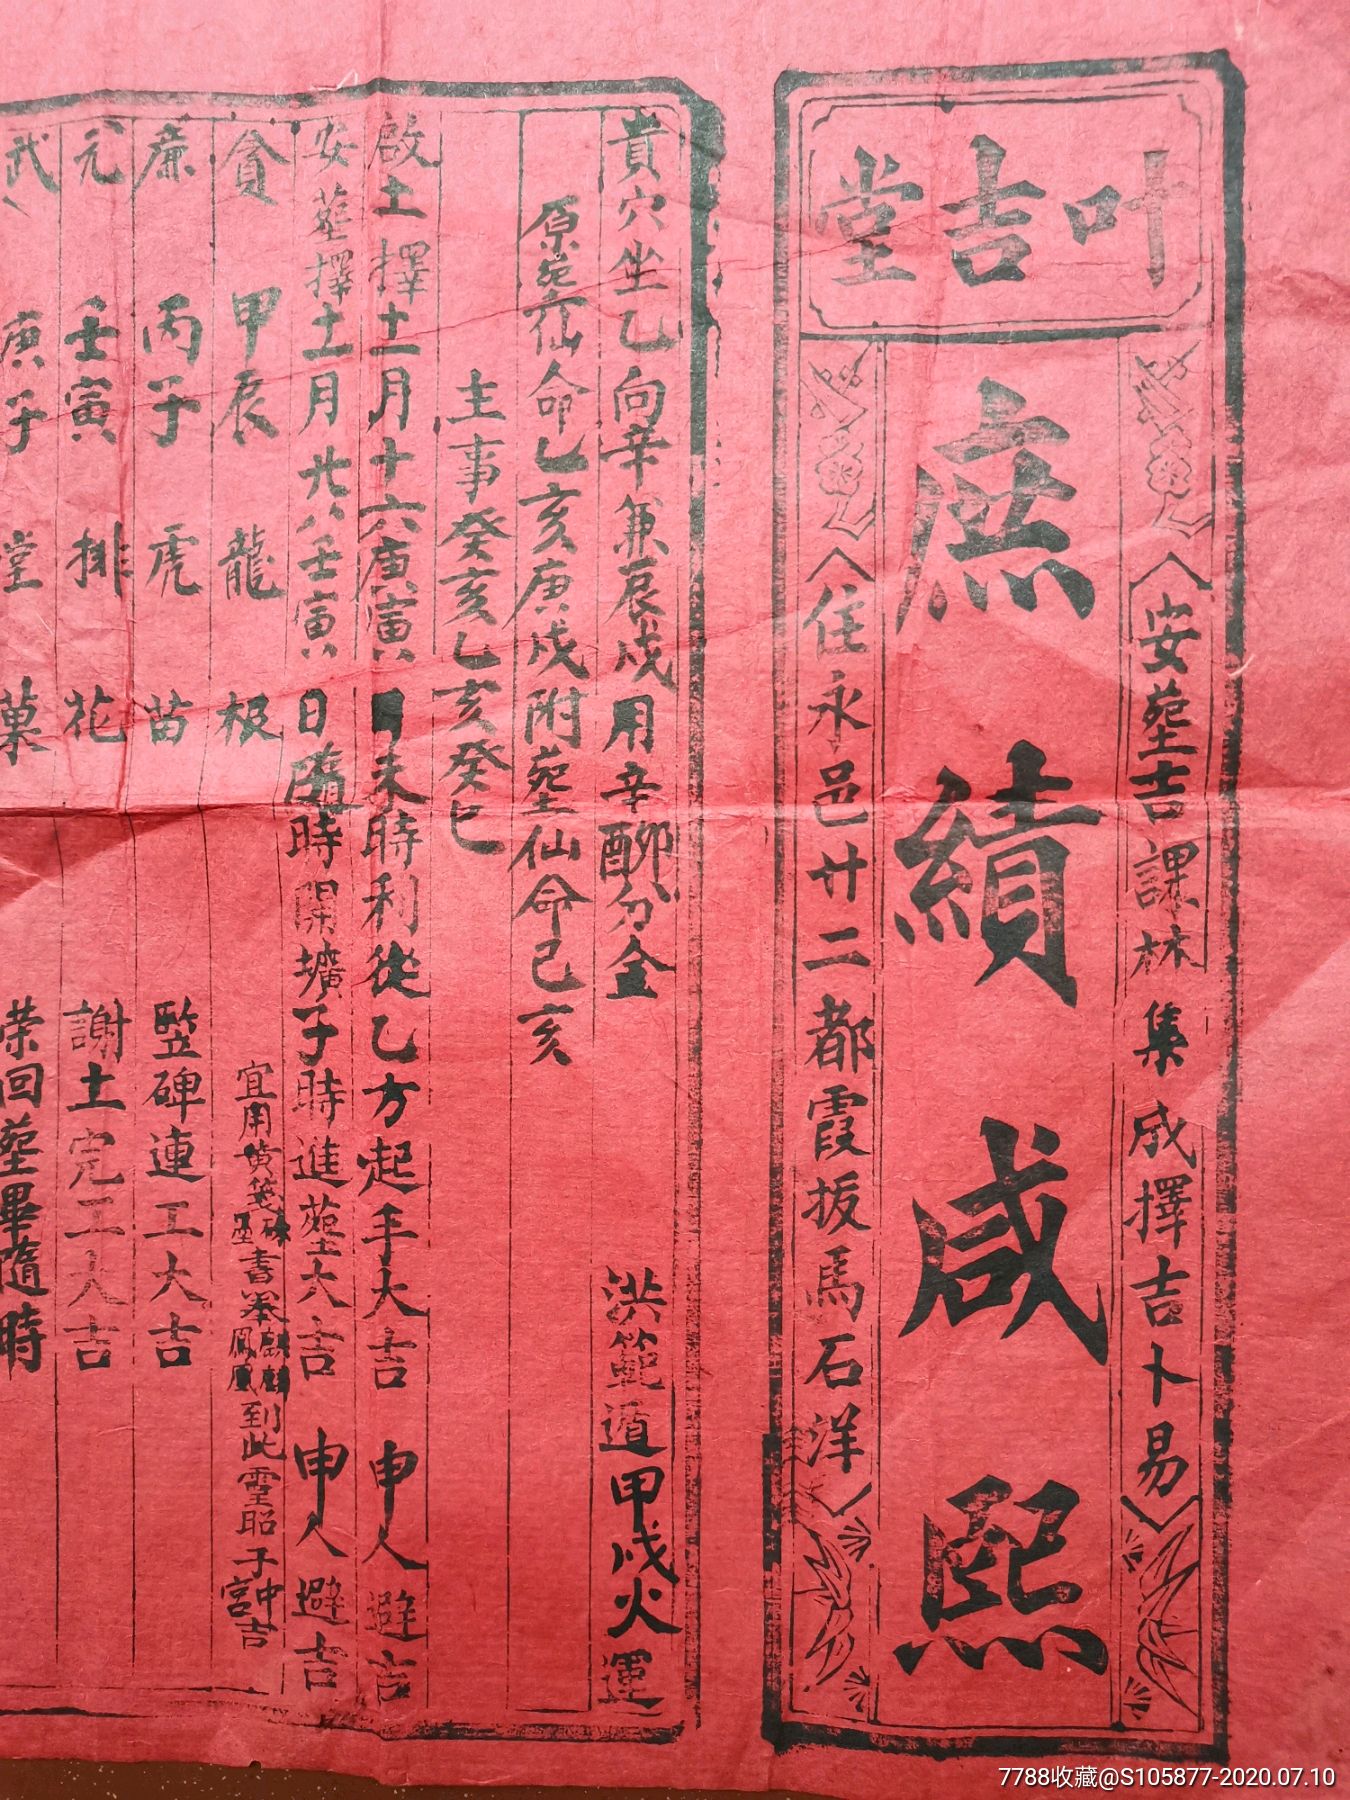 叶吉堂
安塟吉課林集成擇吉卜易
庶績咸熙
住永邑廿二都霞坂馬石洋
貴穴坐乙向辛兼辰戌用辛酉卯分金 洪範遁甲戌火運
原塟仙命乙亥庚戌附塟仙命己亥
主事癸亥乙亥癸巳
啟土擇十一月十六庚寅日未時利從乙方起手大吉 申人避吉
安塟擇十一月廿八壬寅日隨時開壙子時進塟大吉 申人避吉
貪 甲辰 龍 极 宜用黄箋硃書奉麒麟鳳凰到此霊昭子中宮吉
廉 丙子 虎 苗 竪碑連工大吉
元 壬寅 排 花 謝土完工大吉
武 庚子 堂 菓 榮回塟畢隨時
7788收藏@S105877-2020.07.10